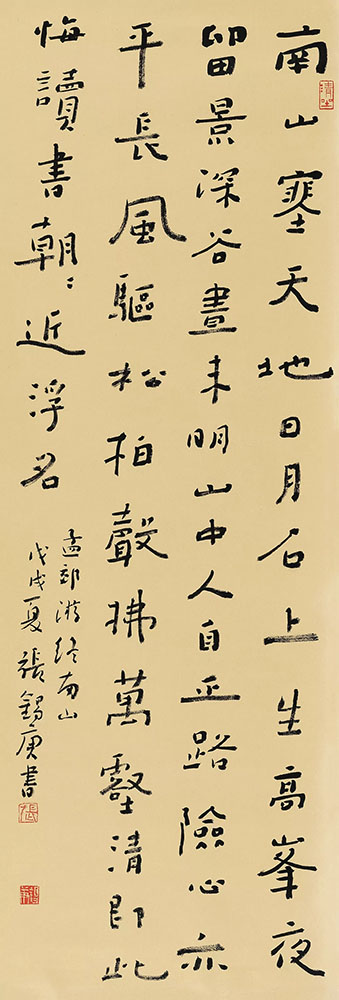 南山塞天地日月石上生高峯夜
留景深谷晝未明山中人自正路險心亦
平長風驅松柏聲拂萬壑清即此
悔讀書朝〻近浮名
孟郊游終南山
戊戌夏張錫庚書